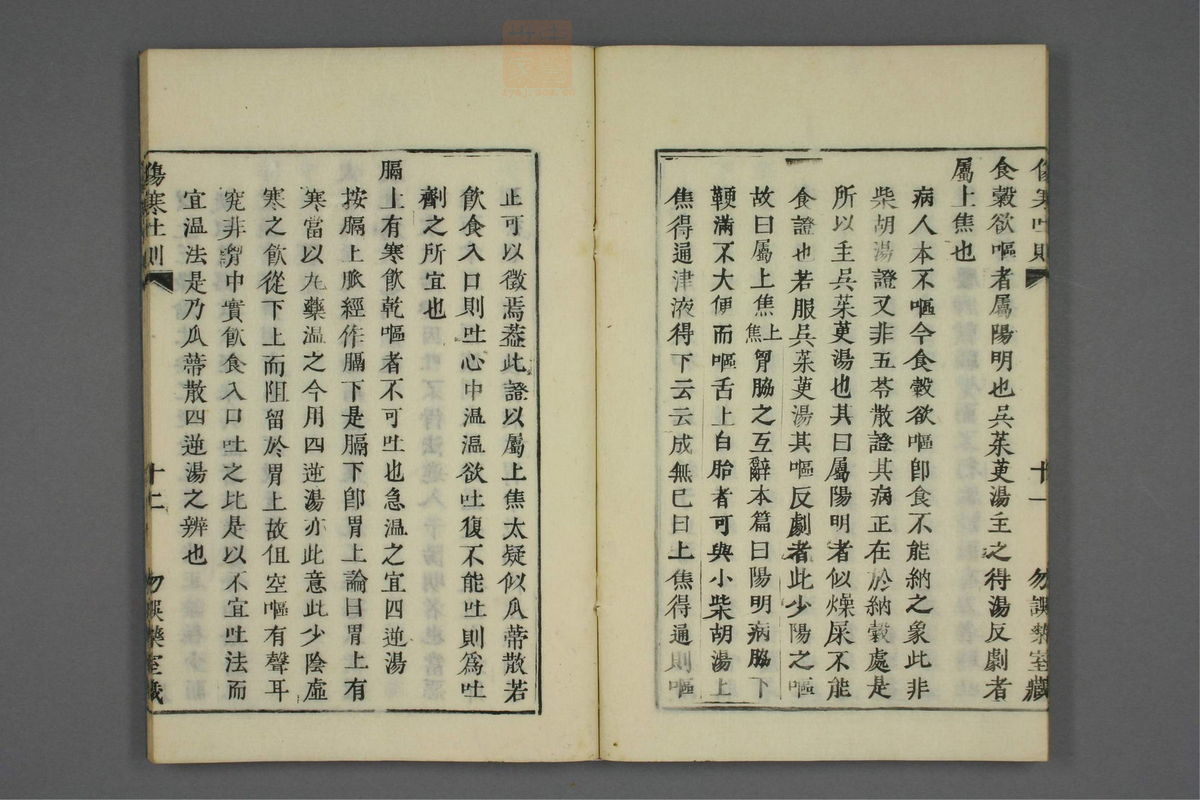 傷寒吐則
十一
勿誤藥室藏
食穀欲嘔者屬陽明也吳茱萸湯主之得湯反劇者
屬上焦也
病人本不嘔今食穀欲嘔卽食不能納之象此非
柴胡湯證又非五苓散證其病正在於納穀處是
所以主吳茱萸湯也其曰屬陽明者似燥屎不能
食證也若服吳茱萸湯其嘔反劇者此少陽之嘔
故曰屬上焦上焦胷脇之互辭本篇曰陽明病脇下
鞕滿不大便而嘔舌上白胎者可與小柴胡湯上
焦得通津液得下云云成無已曰上焦得通則嘔
止可以徵焉葢此證以屬上焦太疑似瓜蔕散若
飮食入口則吐心中溫溫欲吐復不能吐則爲吐
劑之所宜也
膈上有寒飮乾嘔者不可吐也急溫之宜四逆湯
按膈上脈經作膈下是膈下卽胃上論曰胃上有
寒當以丸藥溫之今用四逆湯亦此意此少陰虛
寒之飮從下上而阻留於胃上故但空嘔有聲耳
究非胷中實飮食入口吐之比是以不宜吐法而
宜溫法是乃瓜蔕散四逆湯之辨也
傷寒吐則
十二
勿誤藥室藏